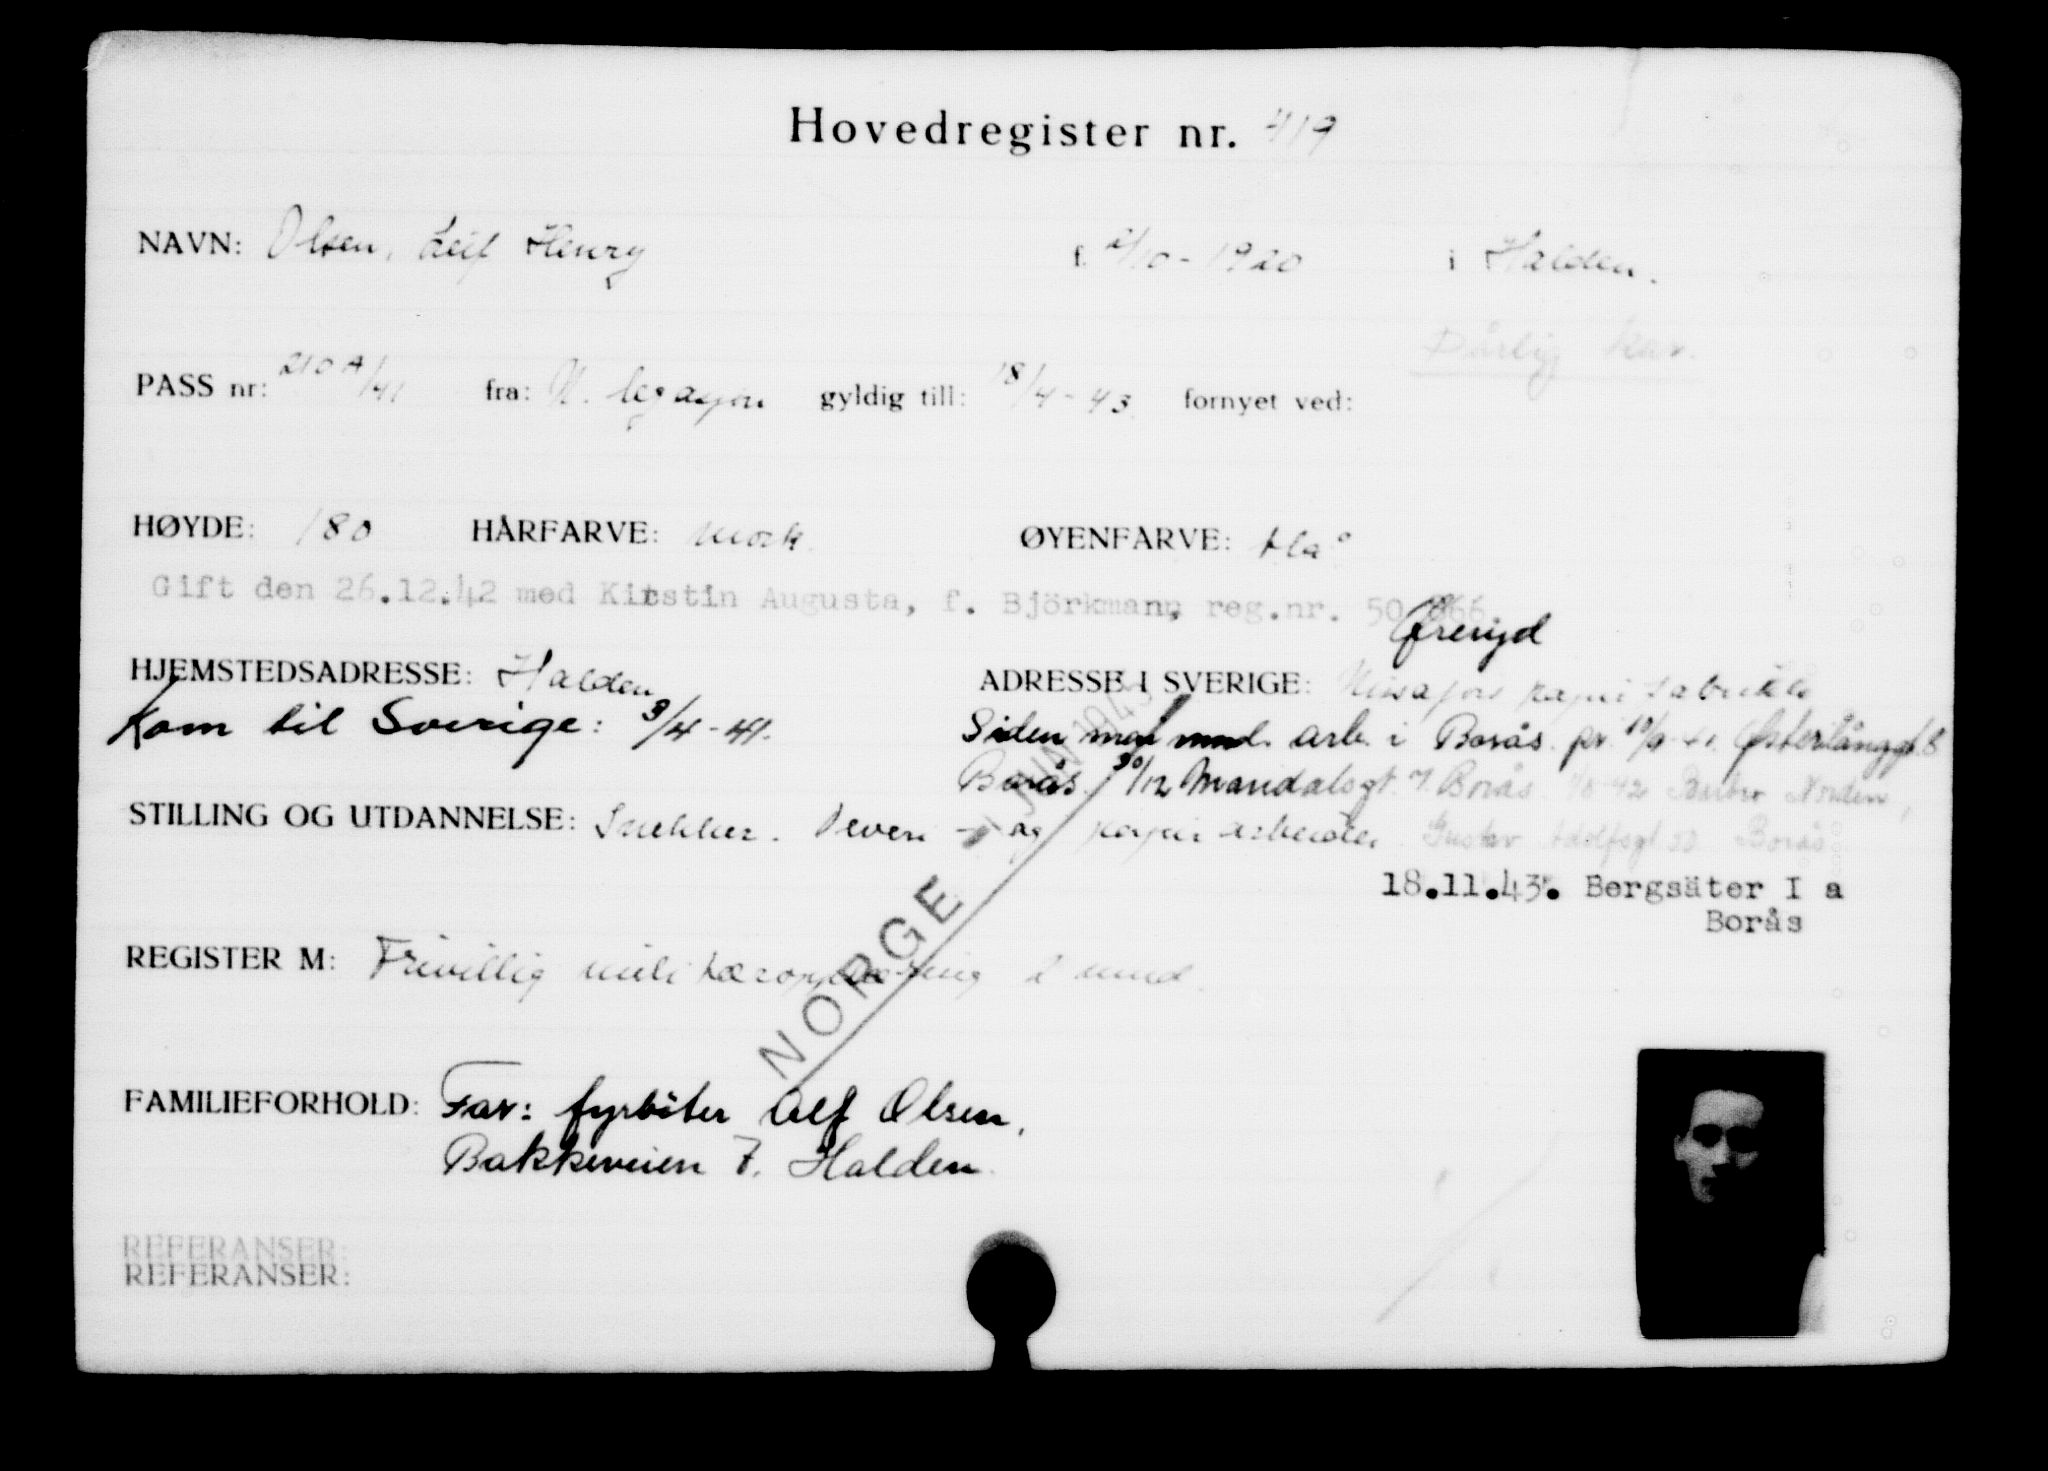 Hovedregister nr. 419
NAVN: Olsen, Leif Henry f. 2/10-1920 i Halden.
Dårlig kar.
PASS nr: 210A/41 fra: N. legasjon gyldig till: 18/4-43 fornyet ved:
HØYDE: 180 HÅRFARVE: mørk ØYENFARVE: blå
Gift den 26.12.42 med Kirstin Augusta, f. Björkmann, reg.nr. 50
Øreryd
HJEMSTEDSADRESSE: Halden ADRESSE I SVERIGE: papirfabrikk
Kom til Sverige: 3/4-41. Siden mai mnd. arb. i Borås. pr. 10/9-41. Østerlånggt. 8
Borås. 30/12 Mandalsgt. 7. Borås. Norden,
STILLING OG UTDANNELSE: Snekker. og papirarbeider Gustav Adolfsgt Borås
18.11.43. Bergsäter I a
Borås
REGISTER M: Frivillig militæropplæring 2 mnd.
NORGE
JUNI 1945
FAMILIEFORHOLD: Far: fyrbøter Alf Olsen,
Bakkeveien 7. Halden.
REFERANSER:
REFERANSER: